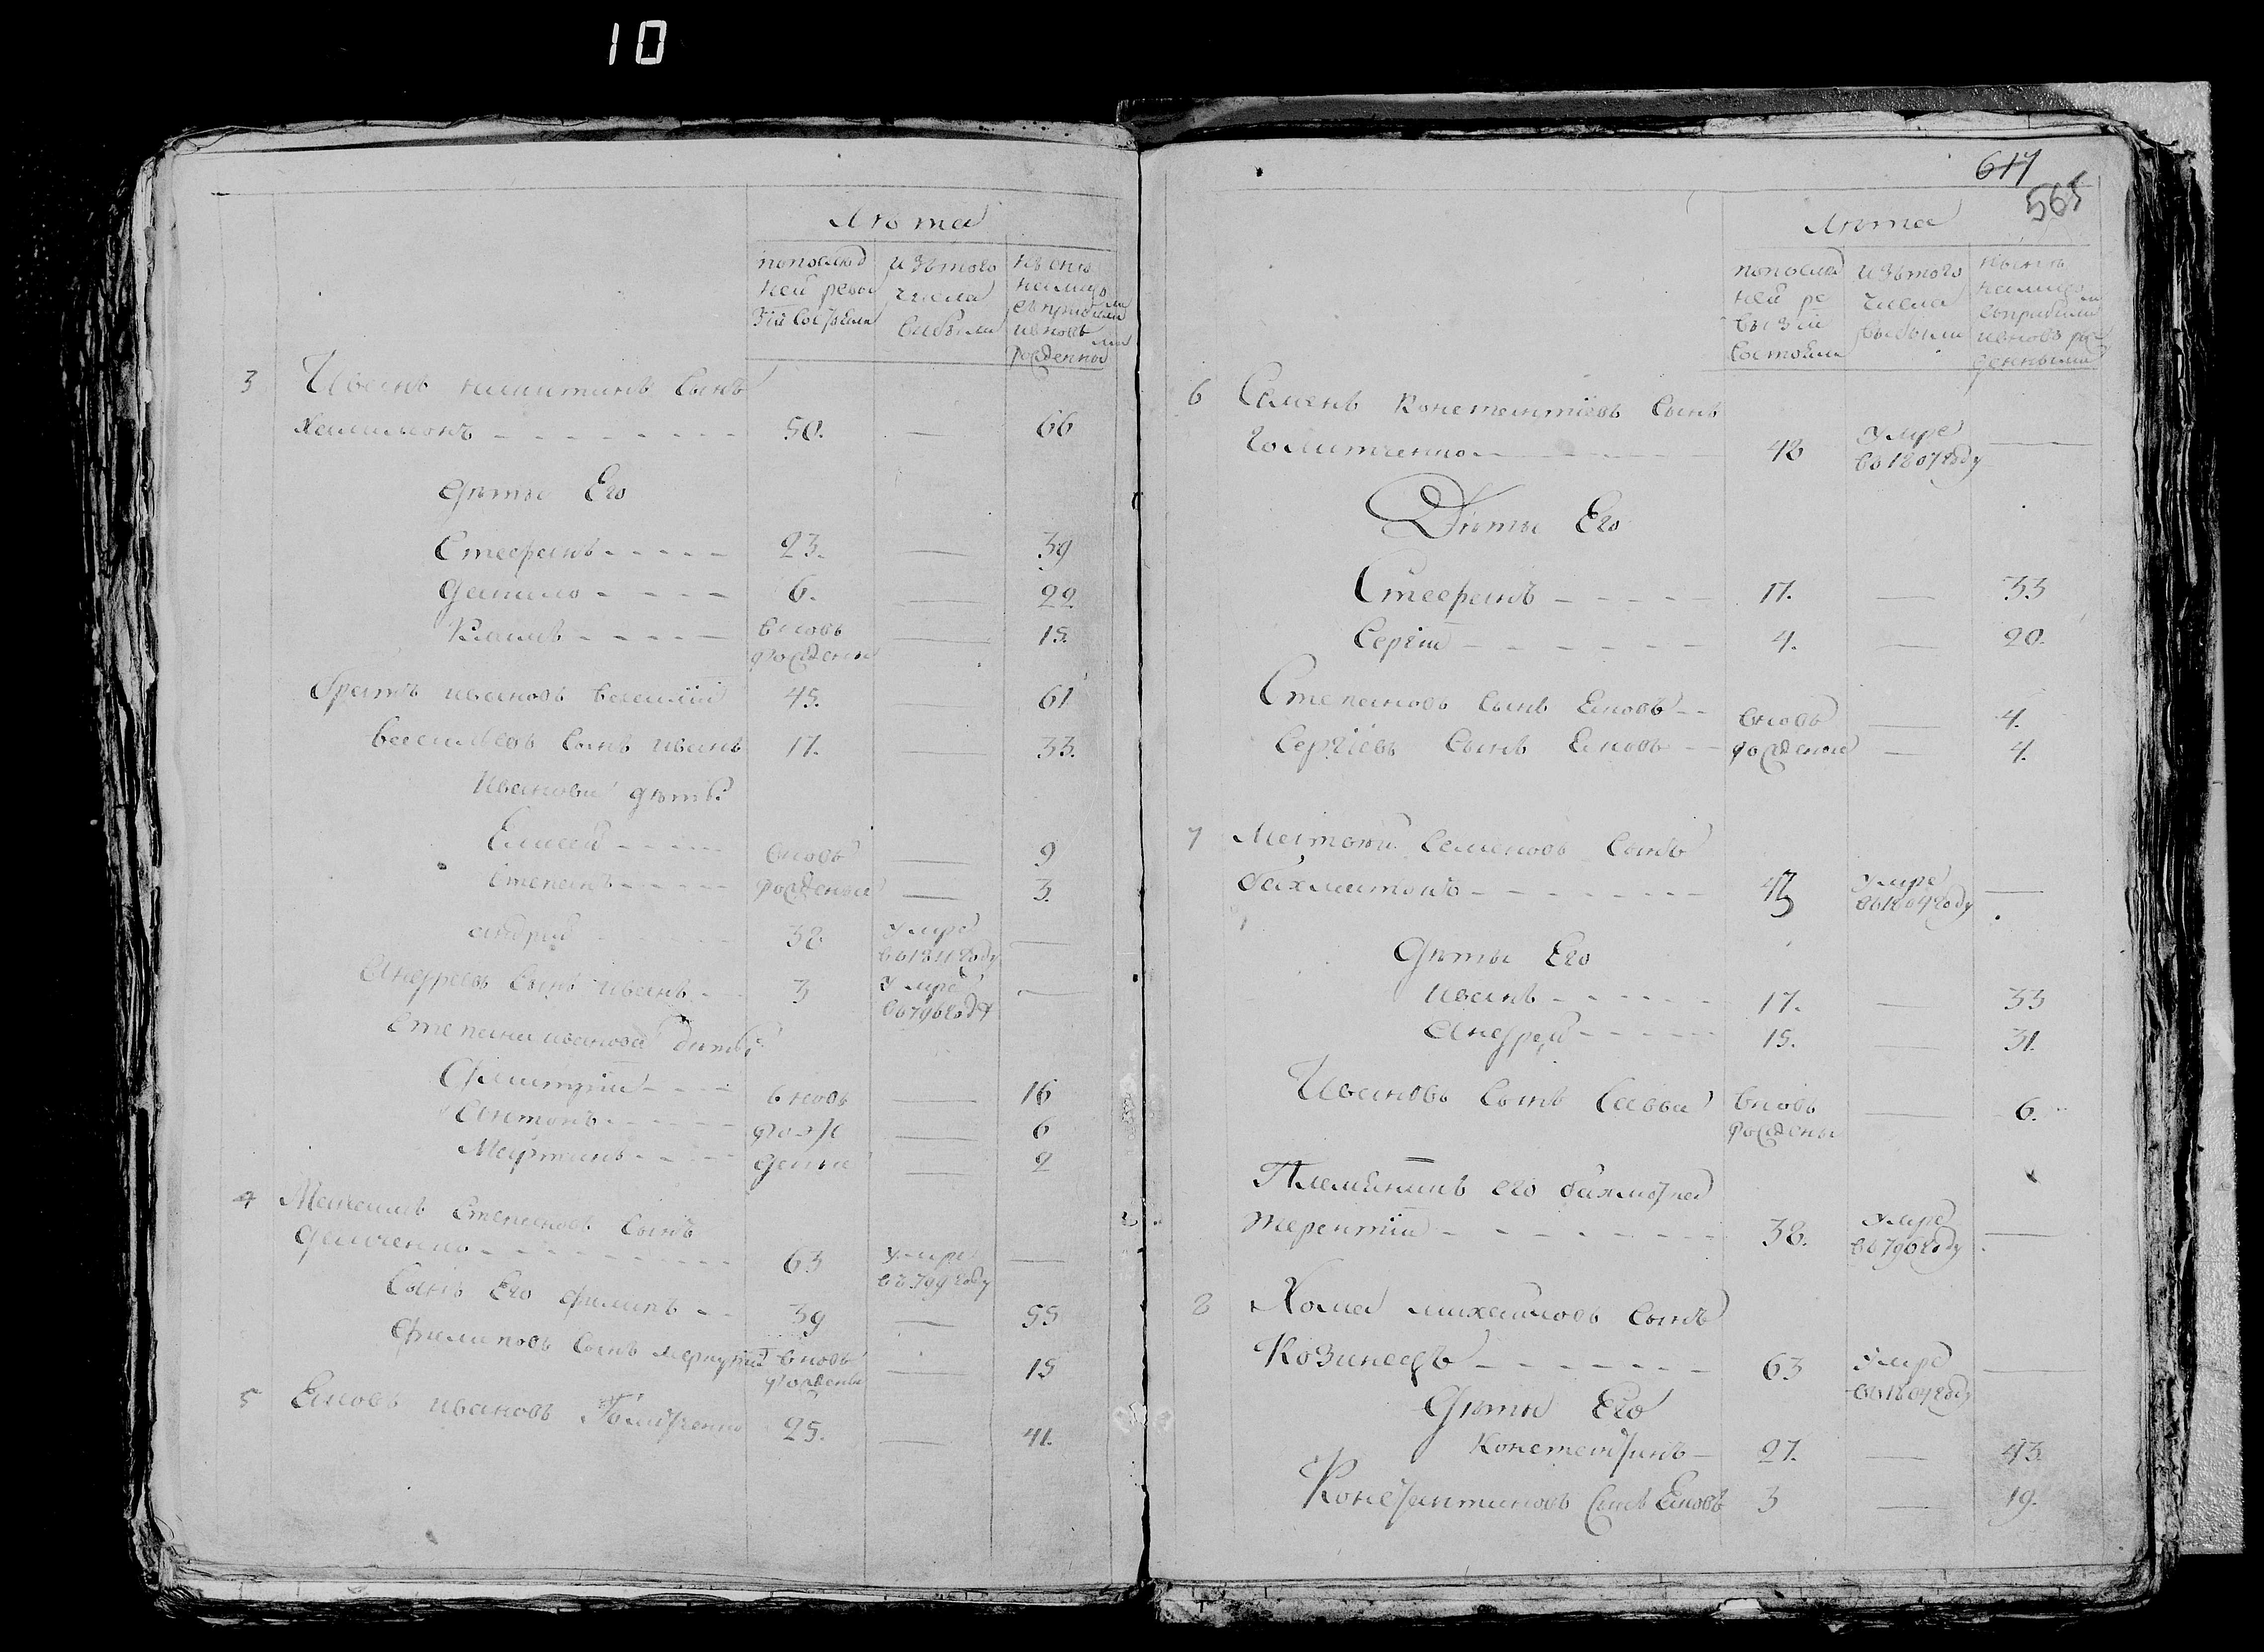 10
Лѣта
попослѣд
ней реви
зіи состояли
изътого
числа
выбыли
нынѣ
налицо
съприбылы
ми
ивновь
рожденны
ми
3 Иванъ никитинъ сынъ
50. — 66
дѣти Его
Стефанъ 23. — 39
данило 6. — 22
вновь
рожденны — 15.
братъ ивановъ василій 45. — 61
васильевъ сынъ иванъ 17. — 33.
Ивановы дѣти
Елисей вновь — 9
степанъ рожденыи — 3.
андрей 38. умре
въ1811году —
Андреевъ сынъ иванъ 3 умре
въ796годѣ —
степана иванова дѣти
Дмитрій вновь — 16
Антонъ рож — 6
Мартинъ денни — 2
4 степановъ сынъ
демченко 63 умре
въ799году —
сынъ Его филипъ 39 — 55
филиповъ сынъ меркурій вновь
рожденъ — 15
5 Еновъ ивановъ 25. — 41.
617
565
Лѣта
попослѣд
ней ре
визіи
состояли
изътого
числа
выбыли
нынѣ
налицо
съприбылы
ми
ивновь рож
денными
6 Семенъ константіевъ сынъ
42 умре
въ1807году —
Дѣти Его
Стефанъ 17. — 33
Сергій 4. — 20.
Степановъ сынъ Еновъ вновь — 4.
Сергіевъ сынъ Еновъ рожденыи — 4.
7 семеновъ сынъ
бахматонъ 43 умре
въ1804году —
дѣти Его
иванъ 17. — 33
Андрей 15. — 31.
Ивановъ сынъ савва вновь
рожденъ — 6.
Племѣникъ его
терентій 38. умре
въ796году —
8 Хома михайловъ сынъ
Козинецъ 63 умре
въ1804году —
дѣти Его
Константинъ 27. — 43.
Константиновъ сынъ Еновъ 3 — 19.